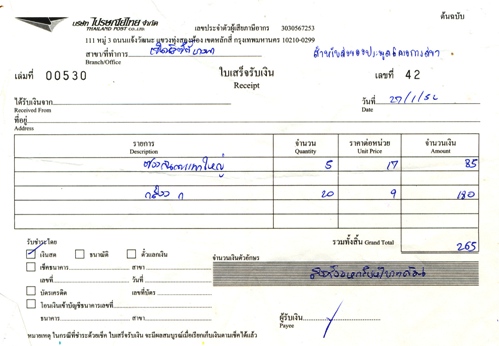 ต้นฉบับ
บริษัท ไปรษณีย์ไทย จำกัด
THAILAND POST CO.,LTD.
เลขประจำตัวผู้เสียภาษีอากร 3030567253
111 หมู่ 3 ถนนแจ้งวัฒนะ แขวงทุ่งสองห้อง เขตหลักสี่ กรุงเทพมหานคร 10210-0299
สาขา/ที่ทำการ
Branch/Office
เล่มที่ 00530
ใบเสร็จรับเงิน
Receipt
เลขที่ 42
ได้รับเงินจาก
Received From
วันที่ 27/1/52
Date
ที่อยู่
Address
รายการ จำนวน ราคาต่อหน่วย จำนวนเงิน
Description Quantity Unit Price Amount
5 17 85
กล่อง ก 20 9 180
รวมทั้งสิ้น Grand Total 265
รับชำระโดย
เงินสด ธนาณัติ ตั๋วแลกเงิน
จำนวนเงินตัวอักษร
เช็คธนาคาร สาขา
เลขที่ วันที่
สองร้อยหกสิบห้าบาทถ้วน
บัตรเครดิต เลขที่บัตร
โอนเงินเข้าบัญชีธนาคารเลขที่
ธนาคาร สาขา
ผู้รับเงิน
Payee
หมายเหตุ ในกรณีที่ชำระด้วยเช็ค ใบเสร็จรับเงิน จะมีผลสมบูรณ์เมื่อเรียกเก็บเงินตามเช็คได้แล้ว